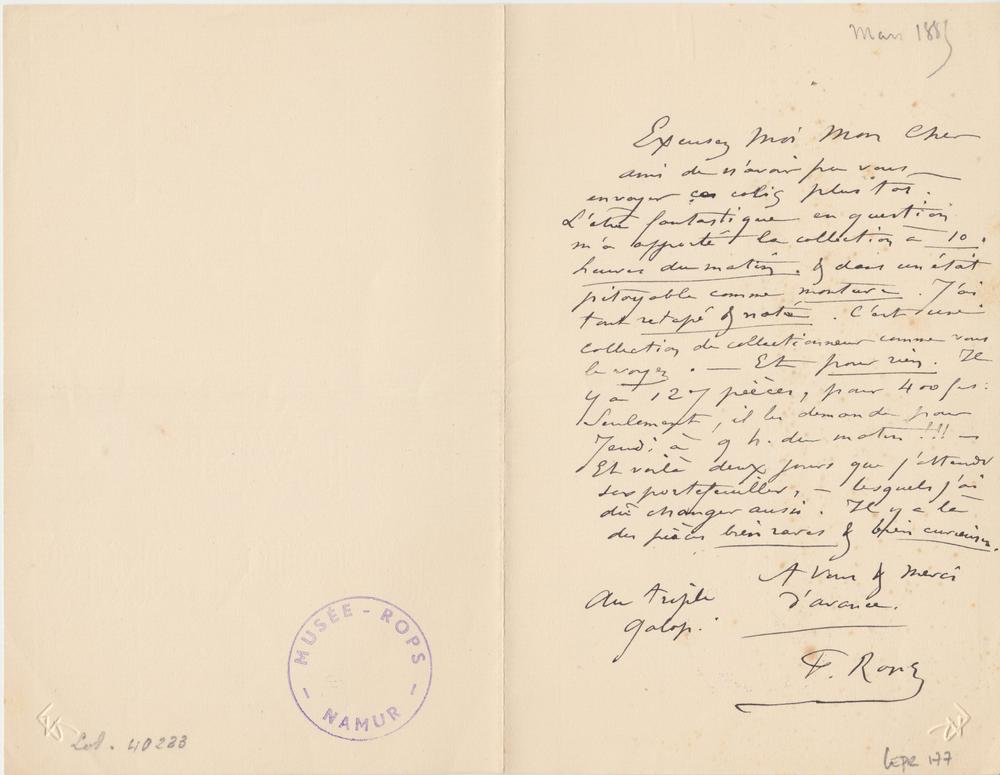 Mars 1885
Excusez Moi Mon Cher
ami de n'avoir pu vous
envoyer ce colis plus tôt.
L'être fantastique en question
m'a apporté la collection à 10.
heures du matin. & dans un état
pitoyable comme monture. J'ai
tout retapé & noté. C'est une
collection de collectionneur comme vous
le voyez. — Et pour rien. Il
y a 127 pièces, pour 400 frs:
Seulement, il les demande pour
Jeudi à 9 h. du matin!!! —
Et voilà deux jours que j'attends
ses portefeuilles, — lesquels j'ai
dû changer aussi. Il y a là
des pièces bien rares & bien curieuses.
A Vous & Merci
d'avance.
Au triple
Galop.
F. Rops
MUSÉE - ROPS
— NAMUR —
40233
LEPR 177